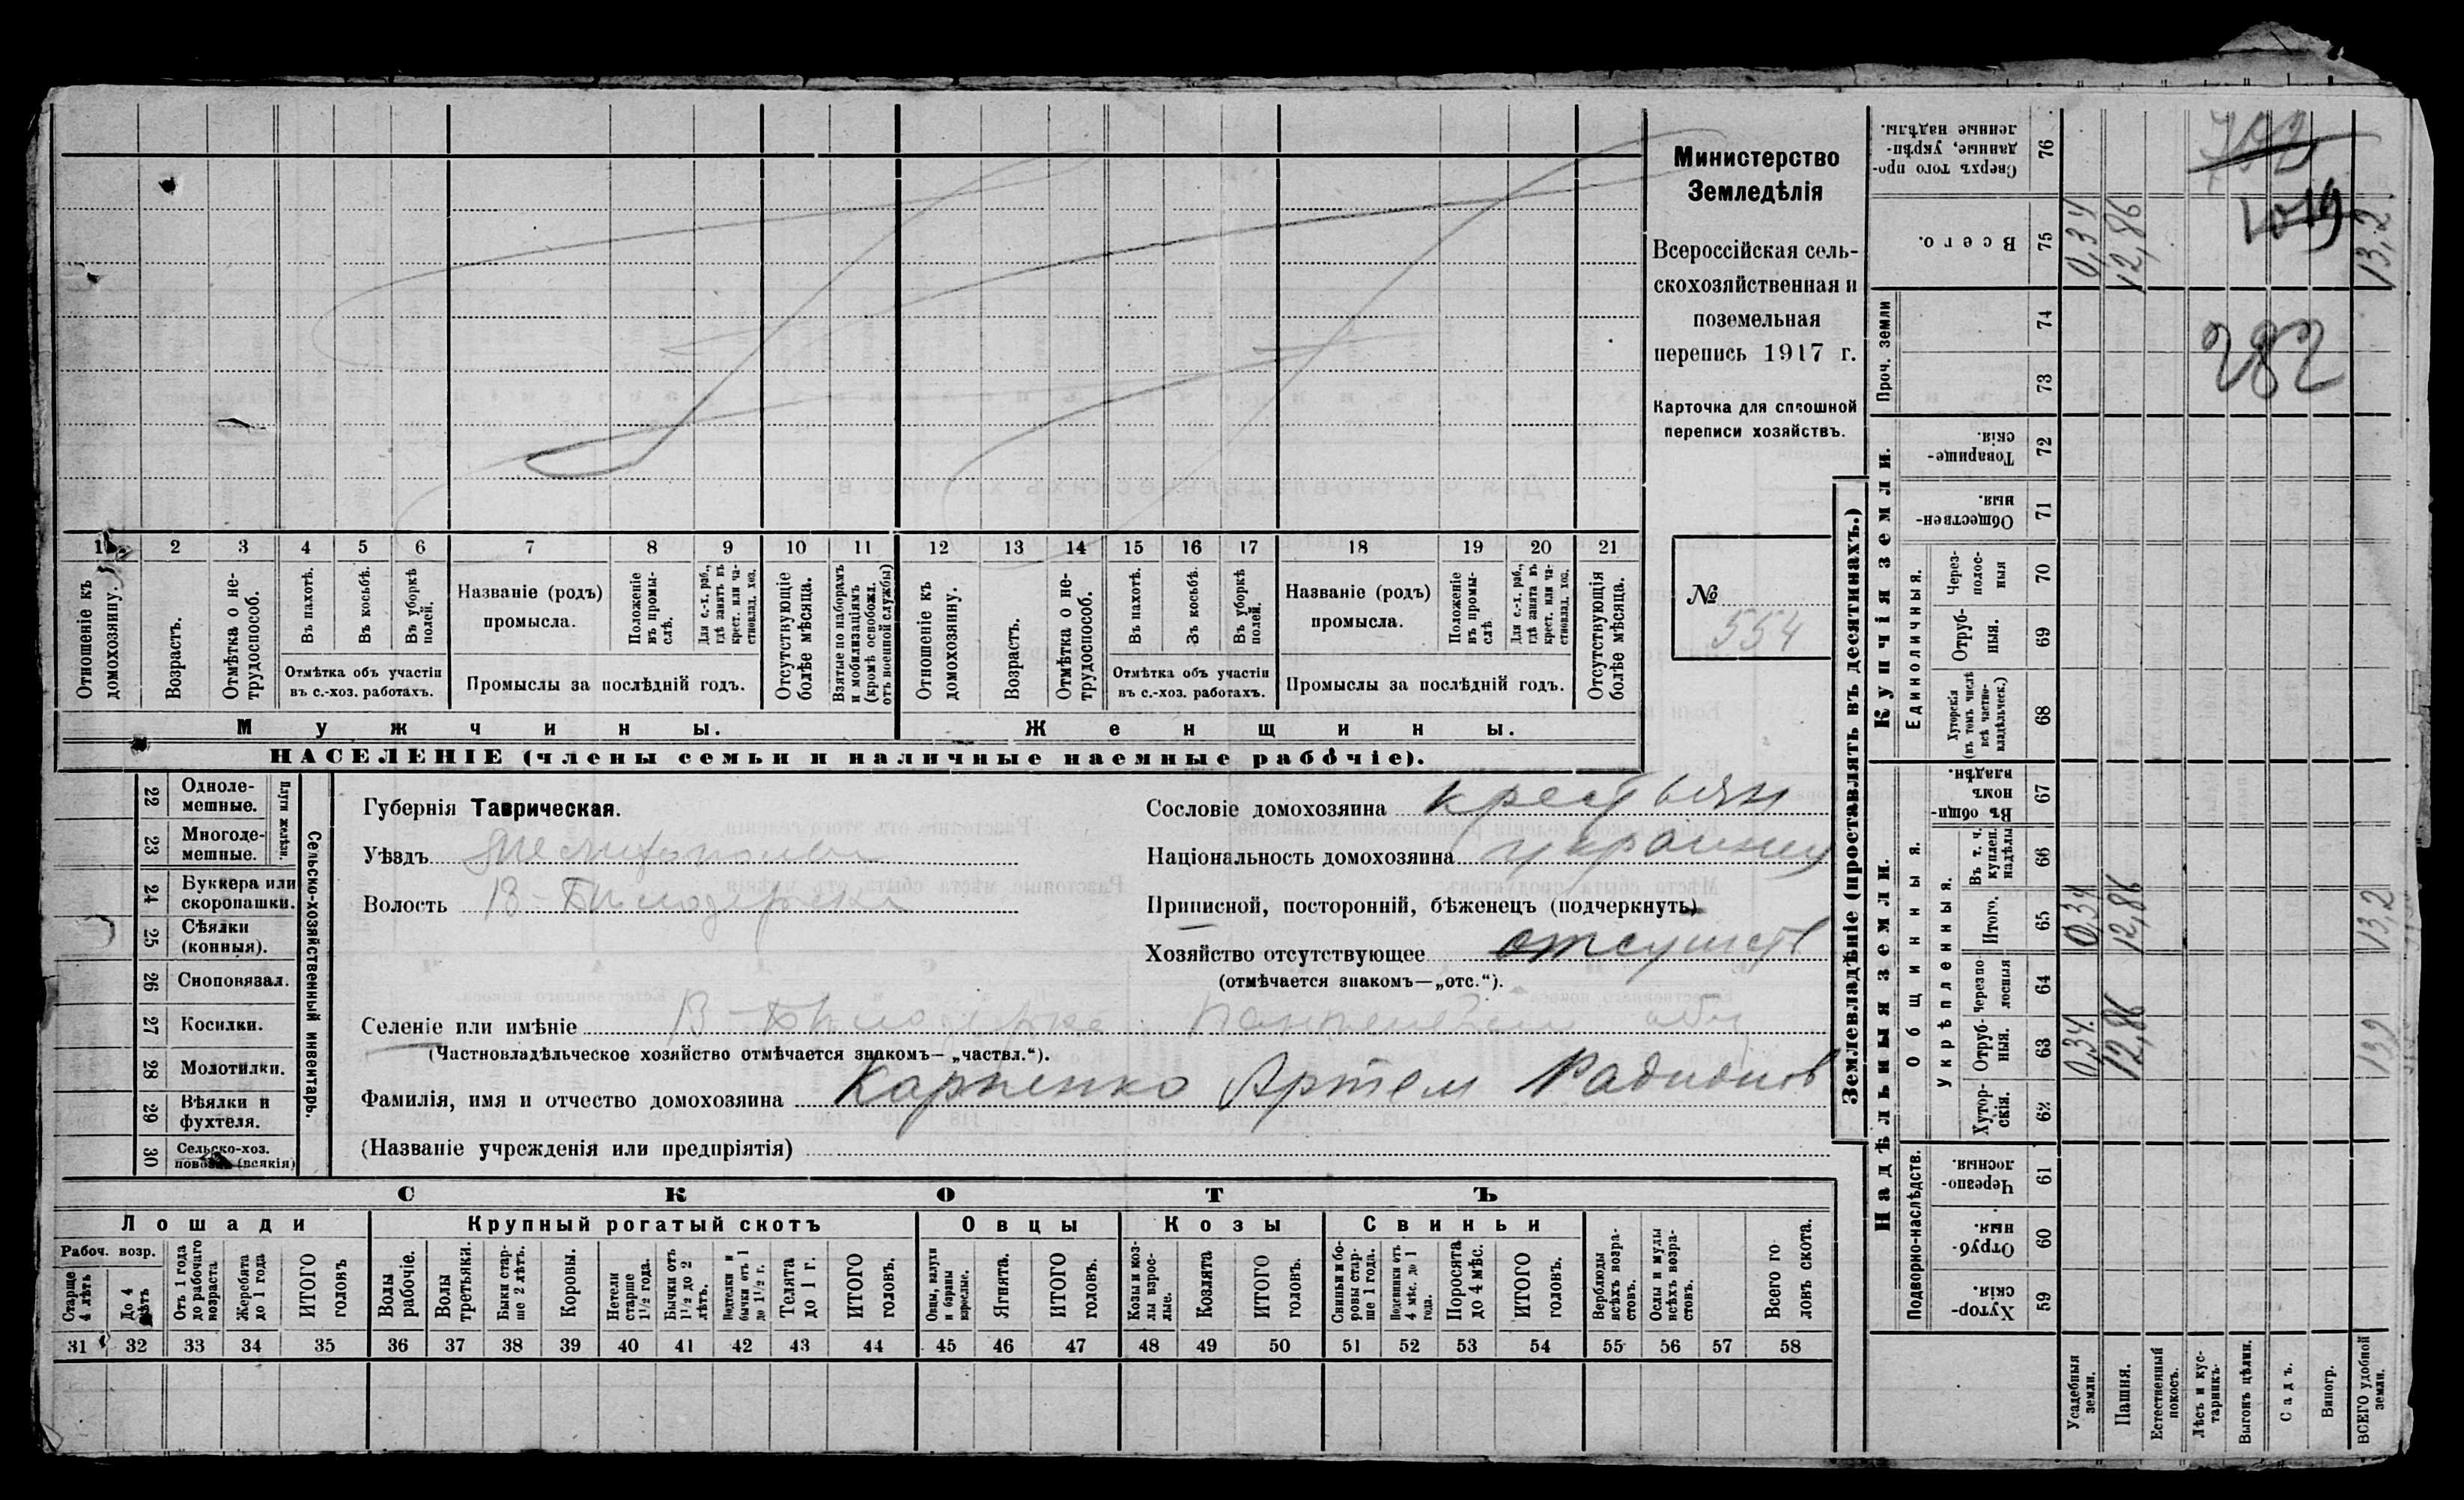 Министерство
Земледѣлія
Всероссійская сель-
скохозяйственная и
поземельная
перепись 1917 г.
Карточка для сплошной
переписи хозяйствъ.
№
554
1 2 3 4 5 6 7 8 9 10 11 12 13 14 15 16 17 18 19 20 21
Отношеніе къ домохозяину.
Возрастъ.
Отмѣтка о не-трудоспособ.
Въ пахотѣ.
Въ косьбѣ.
Въ уборкѣ полей.
Отмѣтка объ участіи
въ с.-хоз. работахъ.
Названіе (родъ)
промысла.
Положеніе въ промы-слѣ.
Для с.-х. раб., гдѣ занятъ въ крест. или ча-стновлад. хоз.
Промыслы за послѣдній годъ.
Отсутствующіе болѣе мѣсяца.
Взятые по наборамъ и мобилизаціямъ (кромѣ освобожд. отъ военной службы)
Отношеніе къ домохозяину.
Возрастъ.
Отмѣтка о не-трудоспособ.
Въ пахотѣ.
Въ косьбѣ.
Въ уборкѣ полей.
Отмѣтка объ участіи
въ с.-хоз. работахъ.
Названіе (родъ)
промысла.
Положеніе въ промы-слѣ.
Для с.-х. раб., гдѣ занята въ крест. или ча-стновлад. хоз.
Промыслы за послѣдній годъ.
Отсутствующія болѣе мѣсяца.
Мужчины.
Женщины.
НАСЕЛЕНІЕ (члены семьи и наличные наемные рабочіе).
22 Одноле-мешные.
23 Многоле-мешные.
Плуги желѣзн.
24 Буккера или скоропашки.
25 Сѣялки (конныя).
26 Сноповязал.
27 Косилки.
28 Молотилки.
29 Вѣялки и фухтеля.
30 Сельско-хоз. повозки (всякія)
Сельско-хозяйственный инвентарь.
Губернія Таврическая.
Уѣздъ Мелитополь
Волость В-Бѣлозерск
Сословіе домохозяина крестьян
Національность домохозяина украинец
Приписной, посторонній, бѣженецъ (подчеркнуть)
Хозяйство отсутствующее отсутств
(отмѣчается знакомъ—„отс.“).
Селеніе или имѣніе В-Бѣлозерка
(Частновладѣльческое хозяйство отмѣчается знакомъ— „частвл.“).
Фамилія, имя и отчество домохозяина Карпенко Артем Радионов
(Названіе учрежденія или предпріятія)
СКОТЪ
Лошади
Крупный рогатый скотъ
Овцы
Козы
Свиньи
Рабоч. возр.
Старше 4 лѣтъ
До 4 лѣтъ
Отъ 1 года до рабочаго возраста
Жеребята до 1 года
ИТОГО головъ
Волы рабочіе.
Волы третьяки.
Быки стар-ше 2 лѣтъ.
Коровы.
Нетели старше 1½ года.
Бычки отъ 1½ до 2 лѣтъ.
Подтелки и бычки отъ 1 до 1½ г.
Телята до 1 г.
ИТОГО головъ.
Овцы, валухи и бараны взрослые.
Ягнята.
ИТОГО головъ.
Козы и коз-лы взрос-лые.
Козлята
ИТОГО головъ.
Свиньи и бо-ровы стар-ше 1 года.
Подсвинки отъ 4 мѣс. до 1 года.
Поросята до 4 мѣс.
ИТОГО головъ.
Верблюды всѣхъ возра-стовъ.
Ослы и мулы всѣхъ возра-стовъ.
Всего го ловъ скота.
31 32 33 34 35 36 37 38 39 40 41 42 43 44 45 46 47 48 49 50 51 52 53 54 55 56 57 58
Землевладѣніе (проставлять въ десятинахъ.)
Сверхъ того про-данные, укрѣп-ленные надѣлы. 76
Всего. 75 0,34 12,86 13,2
Проч. земли
74
73
Купчія земли.
Товарище-скія. 72
Обществен-ныя. 71
Единоличныя.
Через-полос-ныя 70
Отруб-ныя. 69
Хуторскія (въ томъ числѣ всѣ частно-владѣльческ.) 68
Надѣльныя земли.
Общинныя.
Въ общи-номъ владѣн. 67
Укрѣпленныя.
Въ т. ч. куплен. надѣлы 66
Итого. 65 0,34 12,86 13,2
Черезпо лосныя 64
Отруб-ныя. 63 0,34 12,86 13,2
Хутор-скія. 62
Подворно-наслѣдств.
Черезпо-лосныя. 61
Отруб-ныя. 60
Хутор-скія. 59
Усадебныя земли.
Пашня.
Естественный покосъ.
Лѣсъ и кус-тарникъ.
Выгонъ цѣлин.
Садъ.
Виногр.
ВСЕГО удобной земли.
282